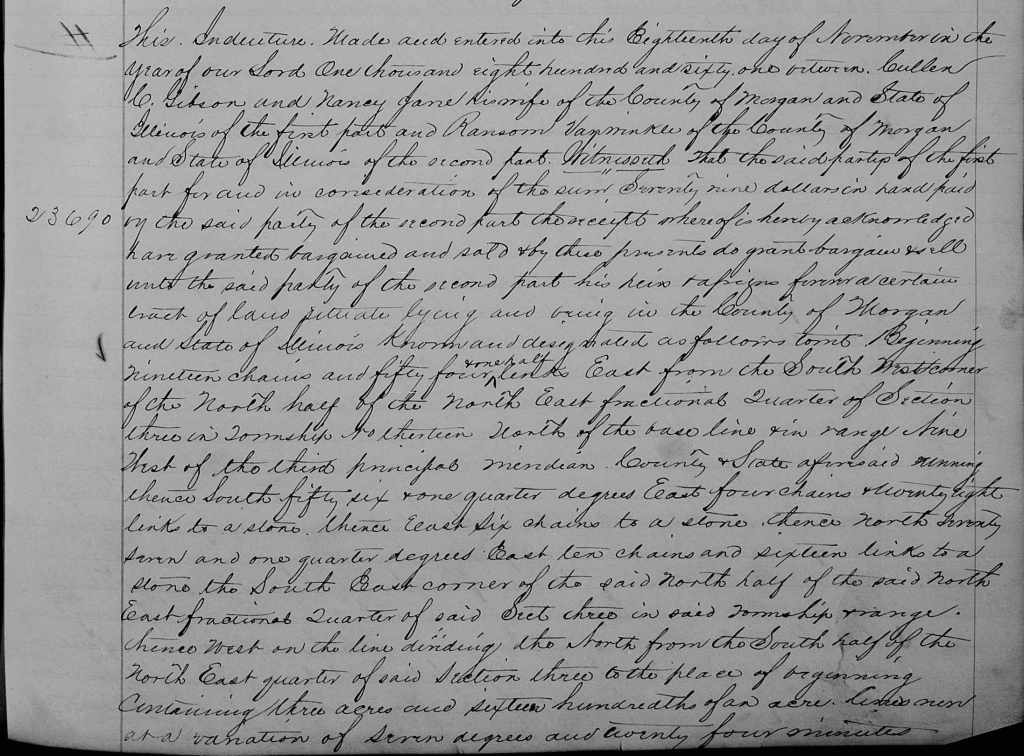 H
This. Indenture. Made and entered into this Eighteenth day of November in the
Year of our Lord One thousand eight hundred and sixty. one between. Cullen
C. Gibson and Nancy Jane his wife of the County of Morgan and State of
Illinois of the first part and Ransom Vanwinkle of the County of Morgan
and State of Illinois of the second part. Witnesseth That the said partys of the first
part for and in consideration of the sum Seventy nine dollars in hand paid
23690 by the said party of the second part the receipt whereof is hereby acknowledged
have granted bargained and sold & by these presents do grant bargain & sell
unto the said party of the second part his heirs & assigns forever a certain
tract of land situate lying and being in the County of Morgan
and State of Illinois Known and designated as follows towit Beginning
Nineteen chains and fifty four & one half links East from the South West corner
of the North half of the North East fractional Quarter of Section
three in Township No therteen North of the base line & in range Nine
West of the third principal meridian. County & State aforesaid running
thence South fifty six & one quarter degrees East four chains & twenty eight
links to a stone. thence East Six chains to a stone. thence North Seventy
seven and one quarter degrees East ten chains and sixteen links to a
stone the South East corner of the said North half of the said North
East fractional Quarter of said Sect three in said Township & range.
thence West on the line dividing the North from the South half of the
North East quarter of said Section three to the place of beginning
Containing three acres and sixteen hundredths of an acre. lines run
at a variation of seven degrees and twenty four minutes